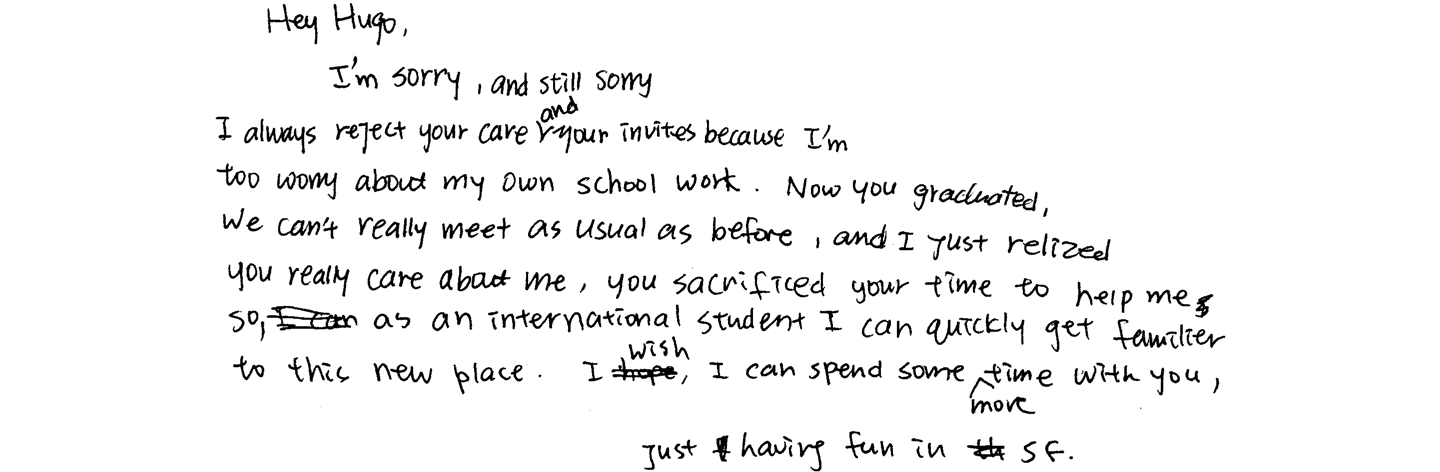 Hey Hugo,
I'm sorry, and still sorry
I always reject your care and your invites because I'm
too worry about my own school work. Now you graduated,
we can't really meet as usual as before, and I just relized
you really care about me, you sacrificed your time to help me
so, as an international student I can quickly get familier
to this new place. I wish, I can spend some more time with you,
just having fun in SF.